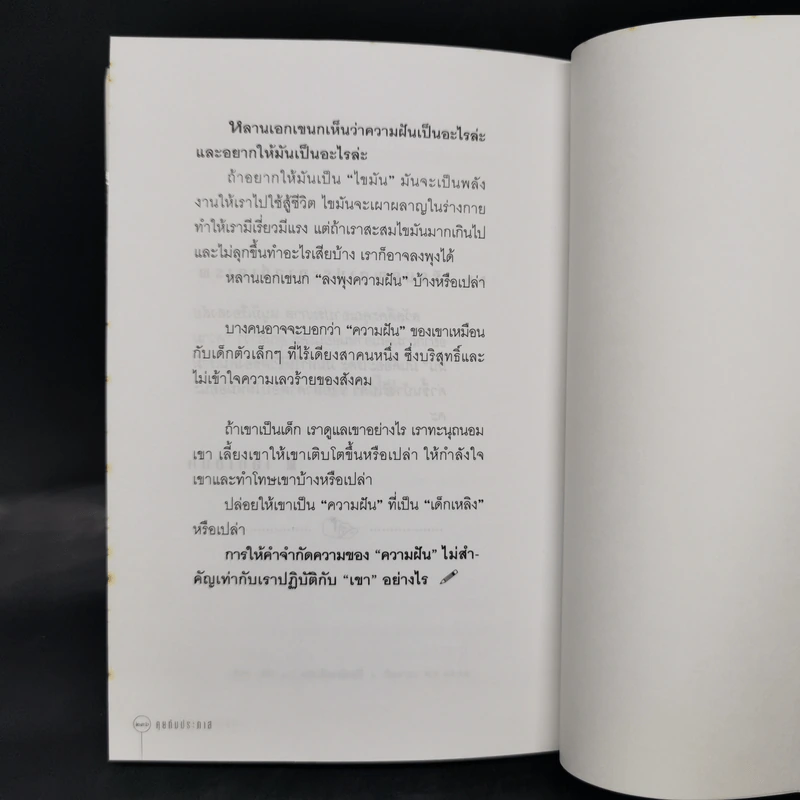 หลานเอกเขนกเห็นว่าความฝันเป็นอะไรล่ะ
และอยากให้มันเป็นอะไรล่ะ
ถ้าอยากให้มันเป็น “ไขมัน” มันจะเป็นพลัง
งานให้เราไปใช้สู้ชีวิต ไขมันจะเผาผลาญในร่างกาย
ทำให้เรามีเรี่ยวมีแรง แต่ถ้าเราสะสมไขมันมากเกินไป
และไม่ลุกขึ้นทำอะไรเสียบ้าง เราก็อาจลงพุงได้
หลานเอกเขนก “ลงพุงความฝัน” บ้างหรือเปล่า
บางคนอาจจะบอกว่า “ความฝัน” ของเขาเหมือน
กับเด็กตัวเล็กๆ ที่ไร้เดียงสาคนหนึ่ง ซึ่งบริสุทธิ์และ
ไม่เข้าใจความเลวร้ายของสังคม
ถ้าเขาเป็นเด็ก เราดูแลเขาอย่างไร เราทะนุถนอม
เขา เลี้ยงเขาให้เขาเติบโตขึ้นหรือเปล่า ให้กำลังใจ
เขาและทำโทษเขาบ้างหรือเปล่า
ปล่อยให้เขาเป็น “ความฝัน” ที่เป็น “เด็กเหลิง”
หรือเปล่า
การให้คำจำกัดความของ “ความฝัน” ไม่สำ-
คัญเท่ากับเราปฏิบัติกับ “เขา” อย่างไร
คุยกับประภาส